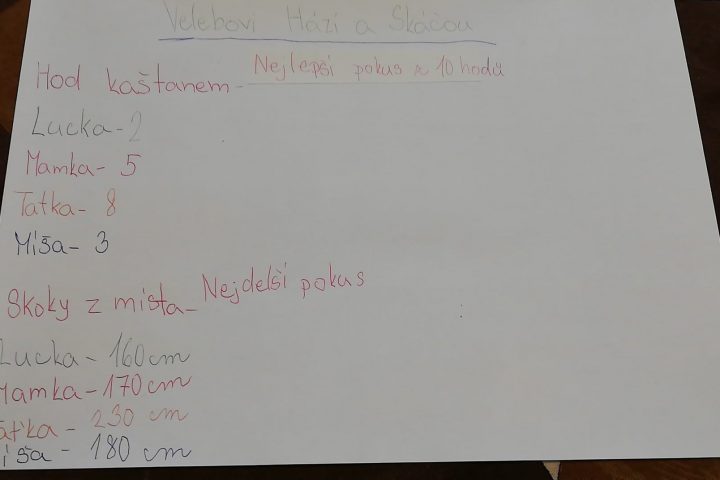 Velebovi Hází a Skáčou
Hod kaštanem - Nejlepší pokus z 10 hodů
Lucka - 2
Mamka - 5
Taťka - 8
Míša - 3
Skoky z místa - Nejdelší pokus
Lucka - 160 cm
Mamka - 170 cm
aťka - 230 cm
íša - 180 cm